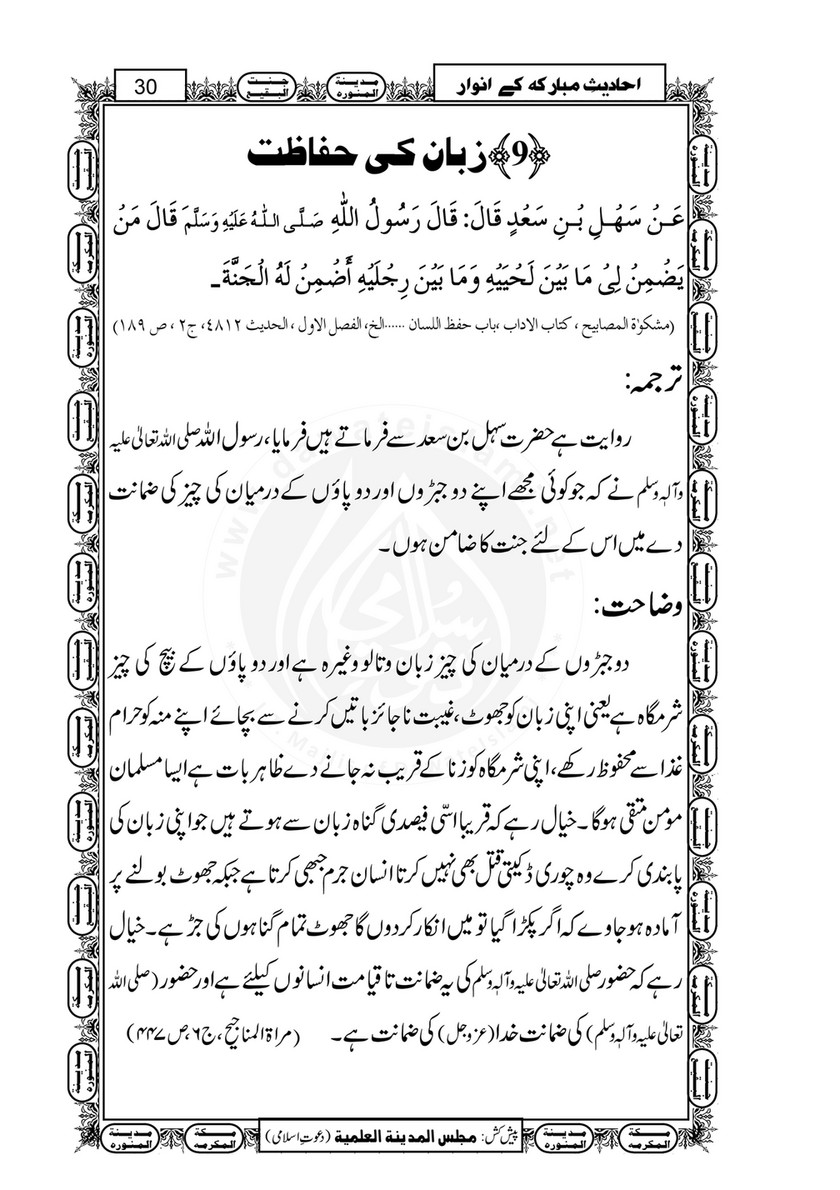 احادیثِ مبارکہ کے انوار
30
﴿9﴾ زبان کی حفاظت
عَنْ سَهْلِ بْنِ سَعْدٍ قَالَ: قَالَ رَسُولُ اللهِ صَلَّى اللهُ عَلَيْهِ وَسَلَّمَ قَالَ مَنْ
يَضْمِنْ لِيْ مَا بَيْنَ لَحْيَيْهِ وَمَا بَيْنَ رِجْلَيْهِ أَضْمِنْ لَهُ الْجَنَّةَ۔
(مشکوٰۃ المصابیح ، کتاب الاداب ،باب حفظ اللسان ......الخ، الفصل الاول ، الحدیث ٤٨١٢، ج٢ ، ص ١٨٩)
ترجمہ:
روایت ہے حضرت سہل بن سعد سے فرماتے ہیں فرمایا، رسول اللہ صلی اللہ تعالیٰ علیہ
وآلہٖ وسلم نے کہ جو کوئی مجھے اپنے دو جبڑوں اور دو پاؤں کے درمیان کی چیز کی ضمانت
دے میں اس کے لئے جنت کا ضامن ہوں۔
وضاحت:
دو جبڑوں کے درمیان کی چیز زبان و تالو وغیرہ ہے اور دو پاؤں کے بیچ کی چیز
شرمگاہ ہے یعنی اپنی زبان کو جھوٹ، غیبت ناجائز باتیں کرنے سے بچائے اپنے منہ کو حرام
غذا سے محفوظ رکھے، اپنی شرمگاہ کو زنا کے قریب نہ جانے دے ظاہر بات ہے ایسا مسلمان
مؤمن متقی ہوگا۔ خیال رہے کہ قریبا اسّی فیصدی گناہ زبان سے ہوتے ہیں جو اپنی زبان کی
پابندی کرے وہ چوری ڈکیتی قتل بھی نہیں کرتا انسان جرم جبھی کرتا ہے جبکہ جھوٹ بولنے پر
آمادہ ہوجاوے کہ اگر پکڑا گیا تو میں انکار کردوں گا جھوٹ تمام گناہوں کی جڑ ہے۔ خیال
رہے کہ حضور صلی اللہ تعالیٰ علیہ وآلہٖ وسلم کی یہ ضمانت تا قیامت انسانوں کیلئے ہے اور حضور (صلی اللہ
تعالیٰ علیہ وآلہٖ وسلم) کی ضمانت خدا (عزوجل) کی ضمانت ہے۔ (مراۃ المناجیح ، ج٦، ص ٤٤٧)
پیش کش: مجلس المدینۃ العلمیۃ (دعوتِ اسلامی)